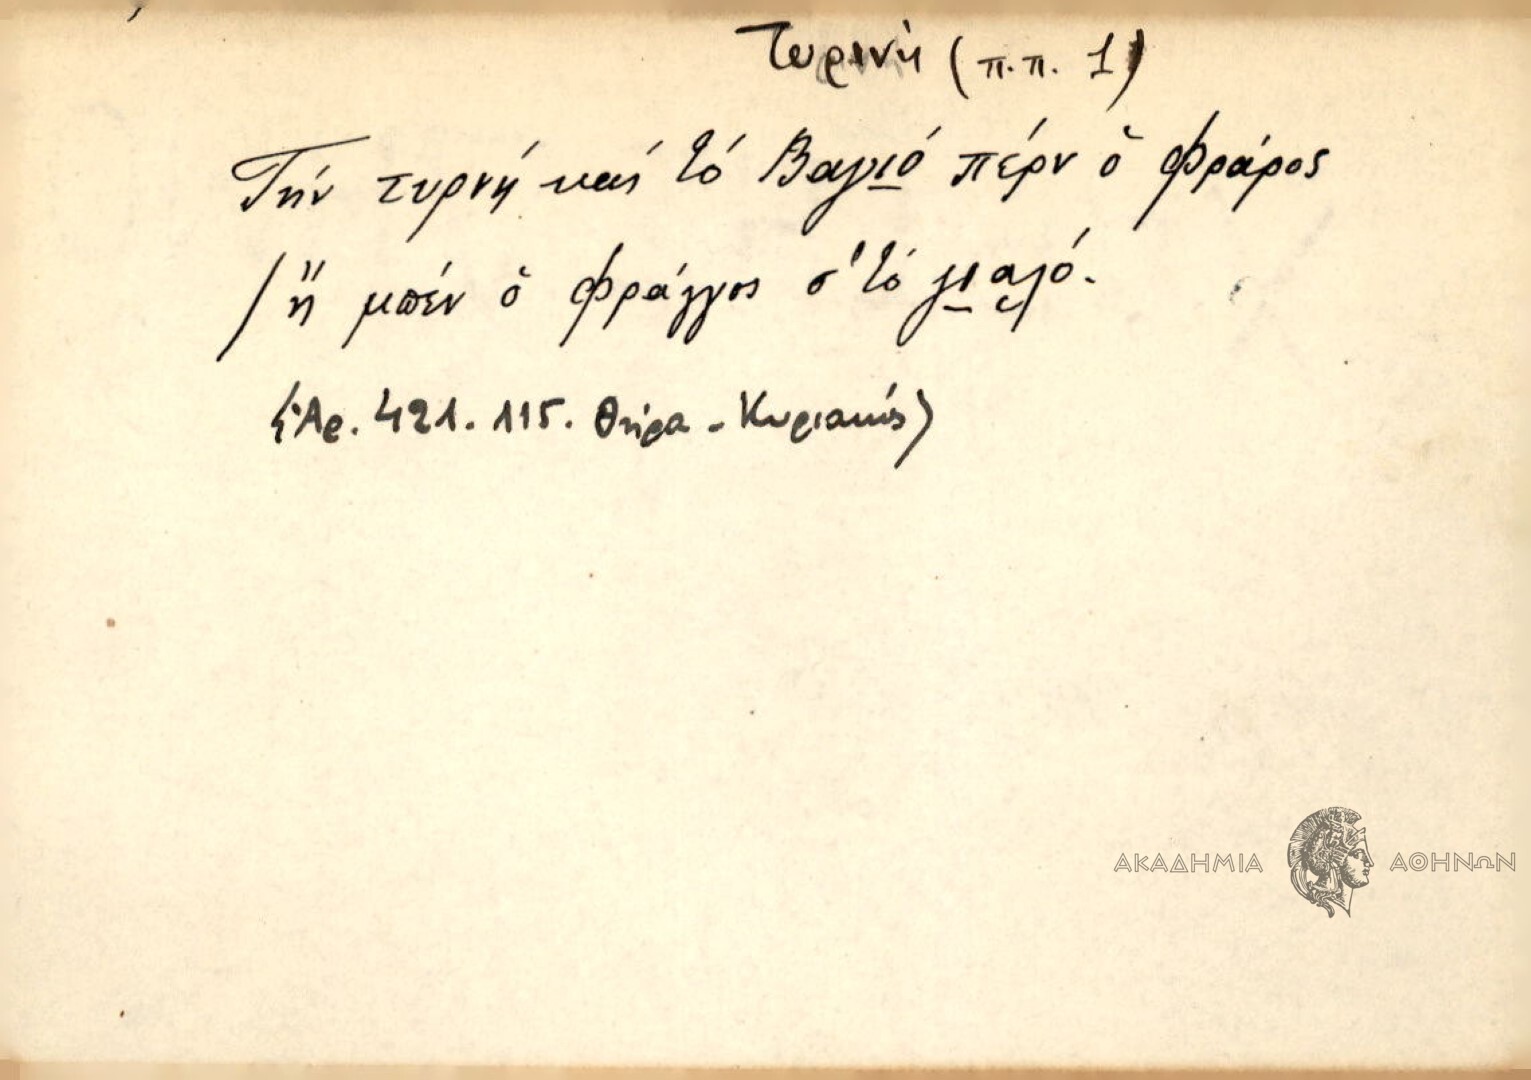 Τυρινή (π.π. 1)
Τήν τυρνή καί τό Βαγιό πέρν ὁ Φράρος
/ ἤ μπέν ὁ Φράγγος σ' τό γιαλό.
(Ἀρ. 421. 115. Θήρα - Κυριακός)
ΑΚΑΔΗΜΙΑ ΑΘΗΝΩΝ